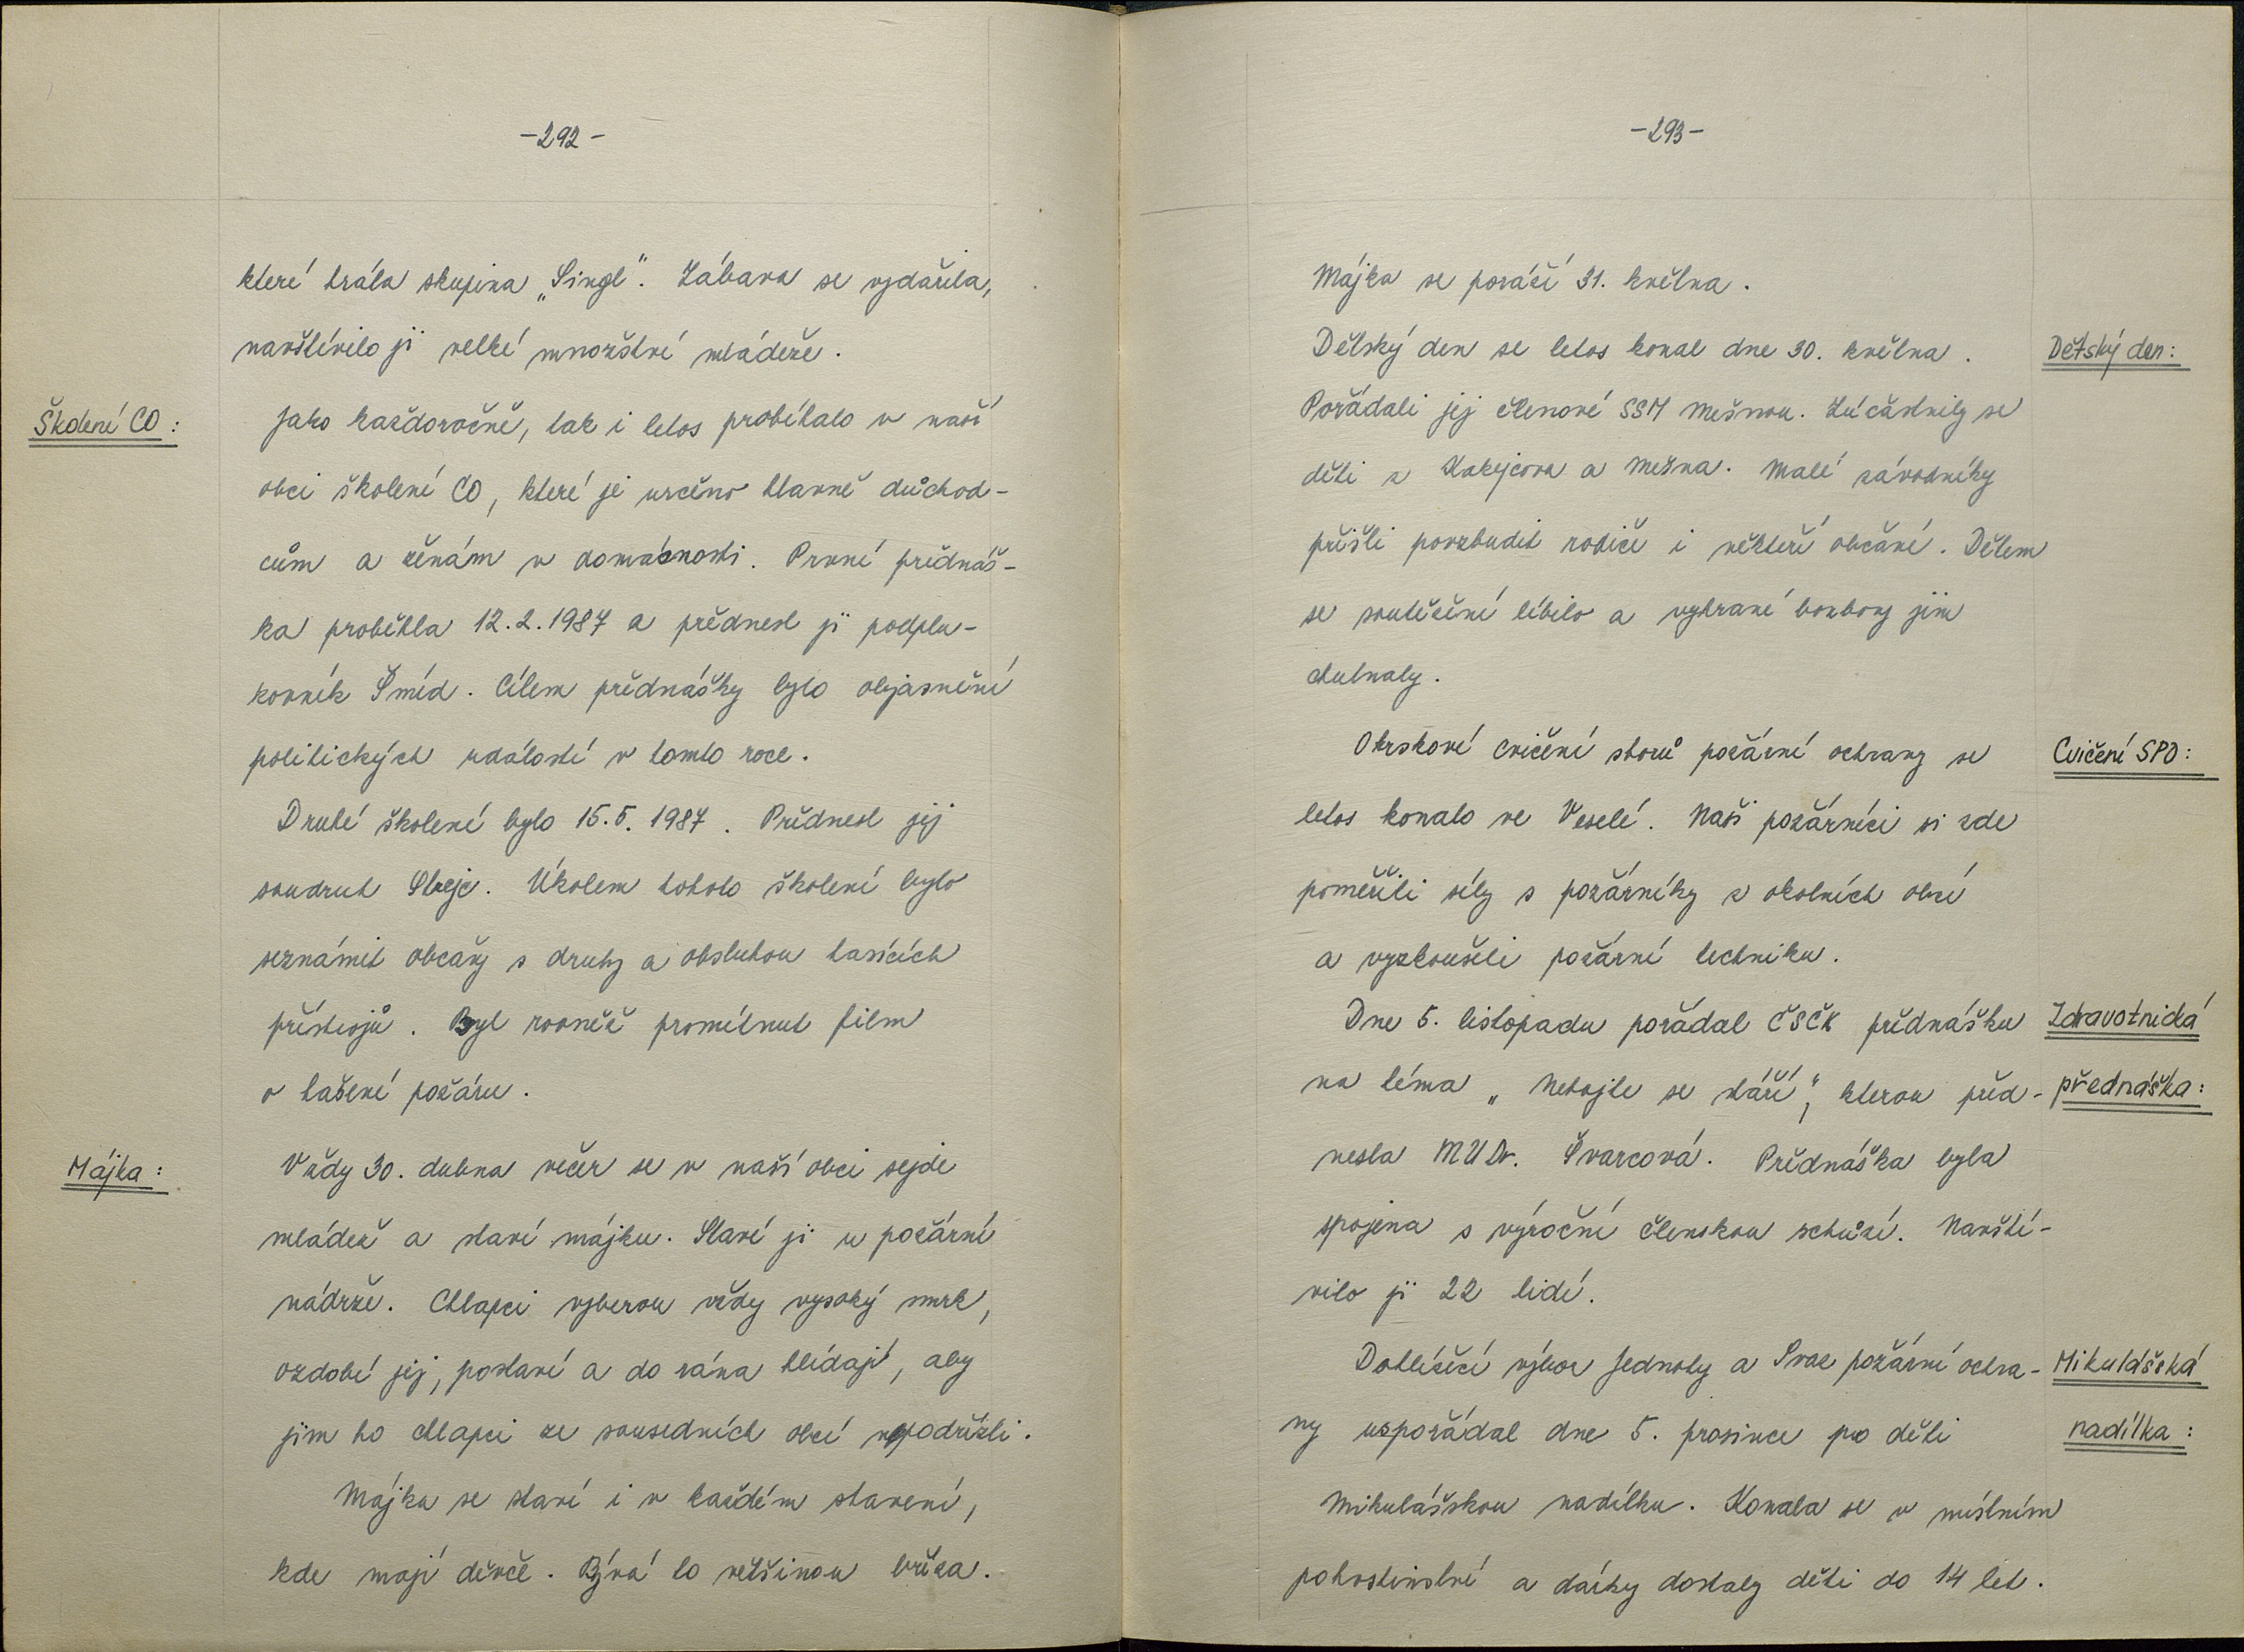 -292-
které hrála skupina „Singl". Zábava se vydařila,
navštívilo ji velké množství mládeže.
Školení CO:
Jako každoročně, tak i letos probíhalo v naší
obci školení CO, které je určeno hlavně důchod-
cům a ženám v domácnosti. První přednáš-
ka proběhla 12.2.1987 a přednesl ji podplu-
kovník Šmíd. Cílem přednášky bylo objasnění
politických událostí v tomto roce.
Druhé školení bylo 15.5.1987. Přednesl jej
soudruh Strejc. Úkolem tohoto školení bylo
seznámit občany s druhy a obsluhou hasících
přístrojů. Byl rovněž promítnut film
o hašení požáru.
Májka:
Vždy 30. dubna večer se v naší obci sejde
mládež a staví májku. Staví ji u požární
nádrže. Chlapci vyberou vždy vysoký smrk,
ozdobí jej, postaví a do rána hlídají, aby
jim ho chlapci ze sousedních obcí nepodřízli.
Májka se staví i v každém stavení,
kde mají děvče. Bývá to většinou bříza.
-293-
Májka se poráží 31. května.
Dětský den se letos konal dne 30. května.
Dětský den:
Pořádali jej členové SSM Mešnou. Zúčastnily se
děti z Kakejcova a Mešna. Malé závodníky
přišli povzbudit rodiče i někteří občané. Dětem
se soutěžení líbilo a vyhrané bonbony jim
chutnaly.
Okrskové cvičení sborů požární ochrany se
Cvičení SPO:
letos konalo ve Veselé. Naši požárníci si zde
poměřili síly s požárníky z okolních obcí
a vyzkoušeli požární techniku.
Dne 5. listopadu pořádal ČSČK přednášku
Zdravotnická
na téma „Nebojte se stáří", kterou před-
přednáška:
nesla MUDr. Švarcová. Přednáška byla
spojena s výroční členskou schůzí. Navští-
vilo ji 22 lidí.
Dohlížecí výbor Jednoty a Svaz požární ochra-
Mikulášská
ny uspořádal dne 5. prosince pro děti
nadílka:
Mikulášskou nadílku. Konala se v místním
pohostinství a dárky dostaly děti do 14 let.